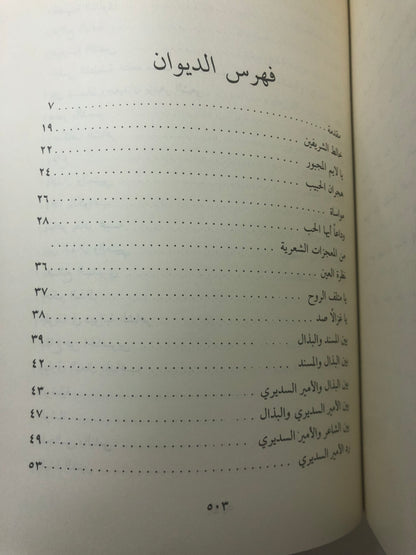 فهرس الديوان
مقدمة ٧
خالط الشريفين ١٩
يا لايم المجبور ٢٢
هجران الحبيب ٢٤
مواساة ٢٦
وداعاً أيها الحب ٢٨
من المعجزات الشعرية
نظرة العين ٣٦
يا متلف الروح ٣٧
يا غزالًا صد ٣٨
بين المسند والبذال ٣٩
بين البذال والمسند ٤٢
بين البذال والأمير السديري ٤٣
بين الأمير السديري والبذال ٤٧
بين الشاعر والأمير السديري ٤٩
رد الأمير السديري ٥٣
٥٠٣